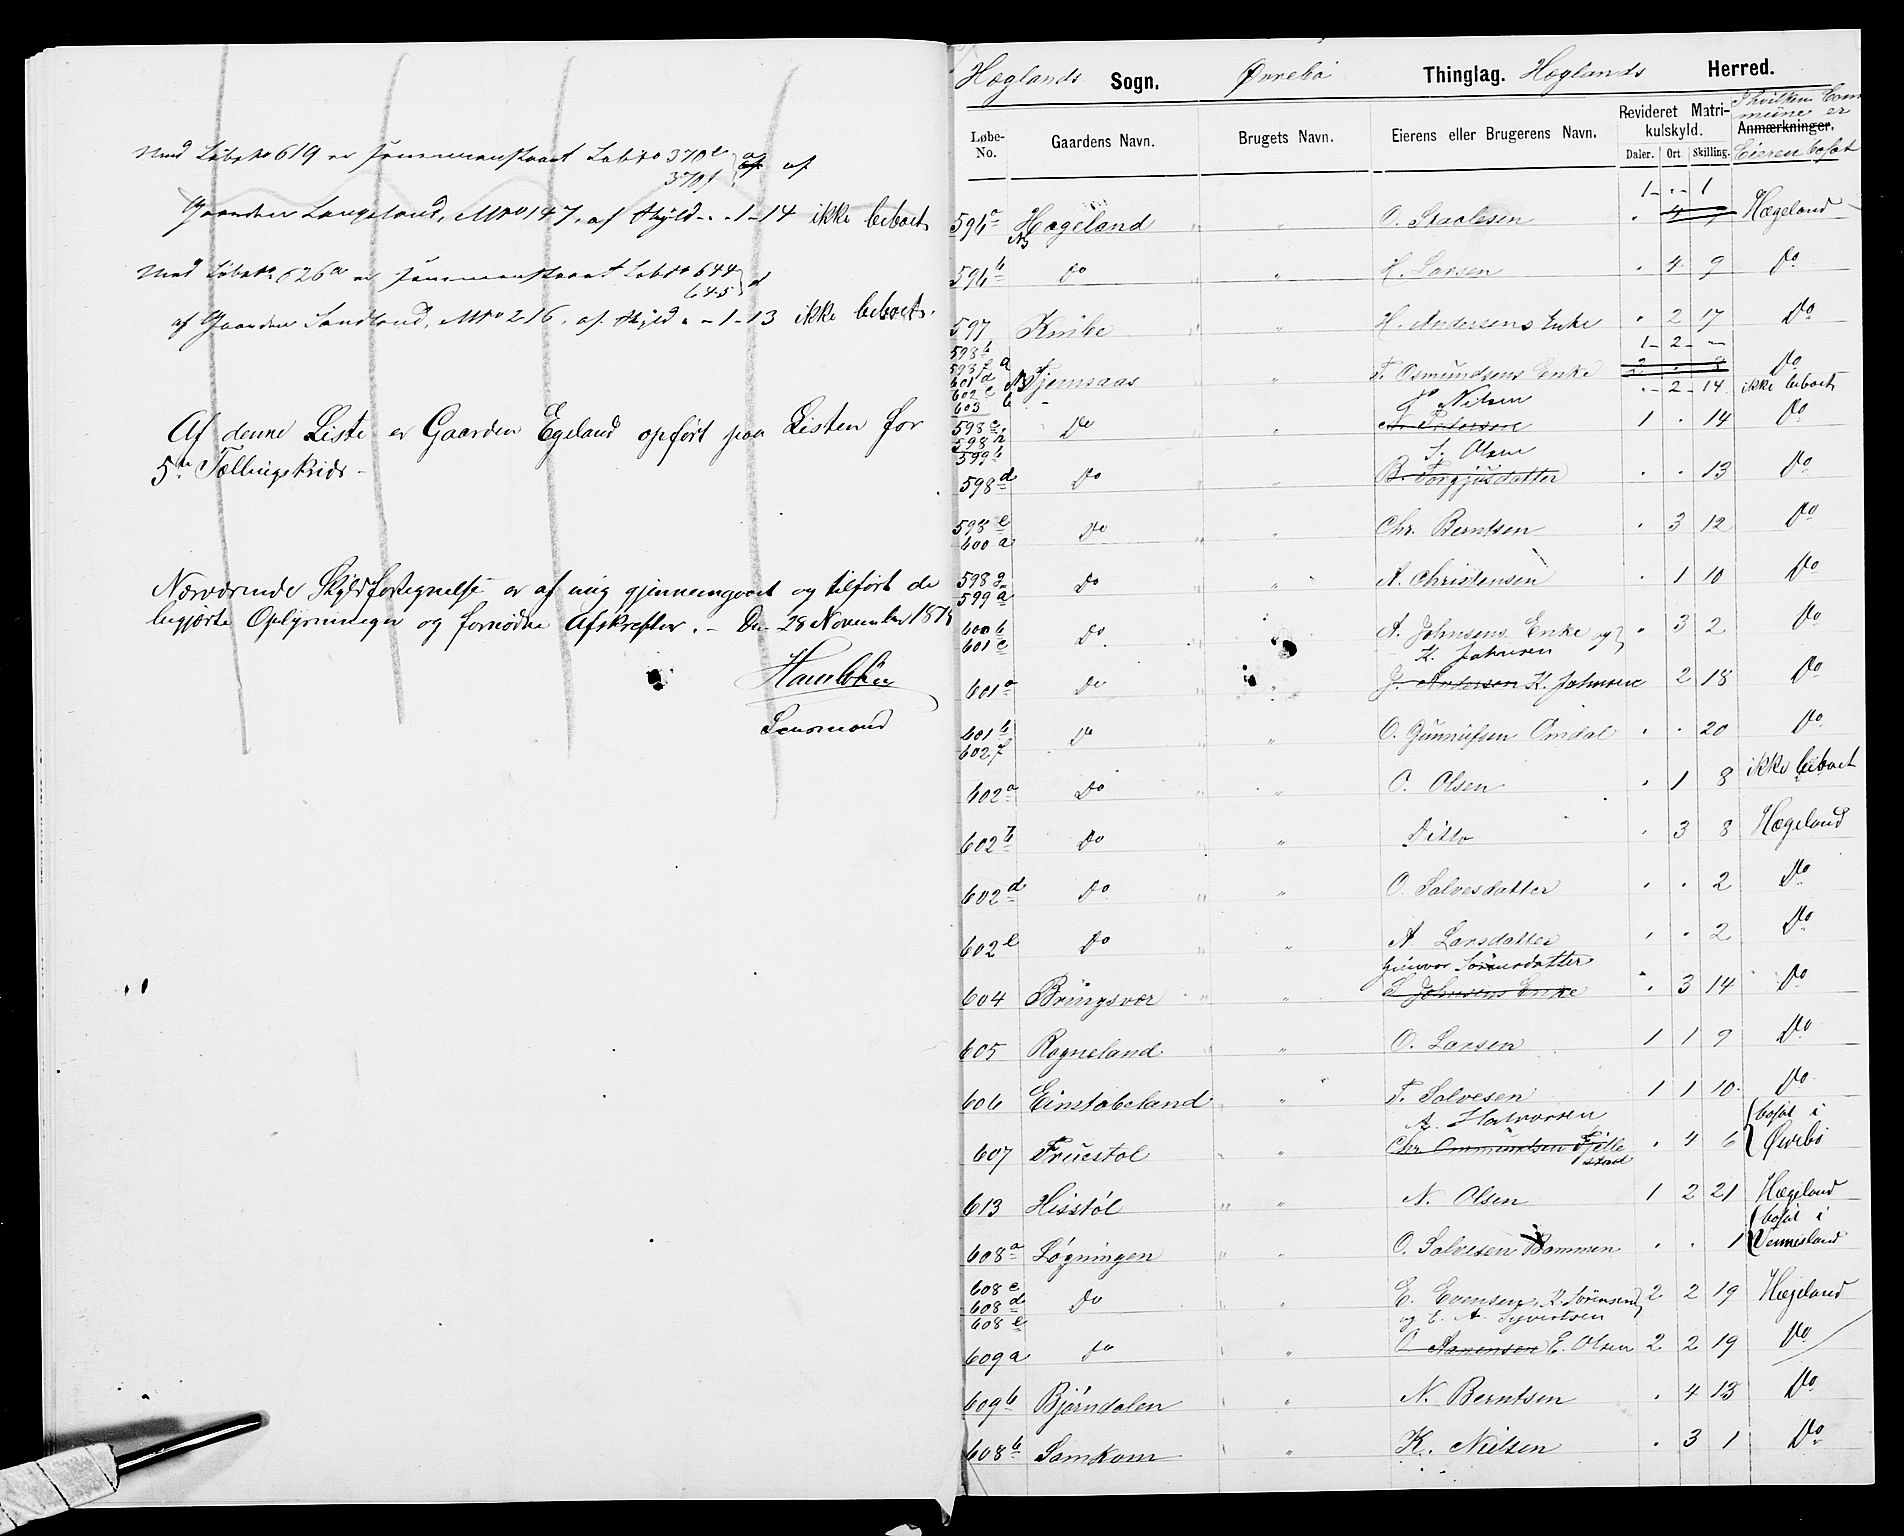 Med Løbeno 619 er sammenskaaret Løbno 370 e
370 f } af
Gaarden Langeland, Mno 147, af Skyld - . - 1 - 14 ikke beboet
Med Løbeno 626 a er sammenskaaret Løbno 644
645 }
af Gaarden Sandland, Mno 216, af Skyld . - 1 - 13 ikke beboet.
Af denne Liste er Gaarden Egeland opført paa Listen for
5te Tællingskrids -
Nærværende Skyldfortegnelse er af mig gjennemgaaet og tilført de
begjærte Oplysninger og fornødne Afskrifter. - Den 28 November 187
Lensmand
Hæglands Sogn. Øvrebø Thinglag. Hæglands Herred.
Løbe-No. Gaardens Navn. Brugets Navn. Eierens eller Brugerens Navn. Revideret Matrikulskyld. Daler. Ort Skilling. Anmærkninger. I hvilken Commune er Eieren bosat
1 - . - 1
596 a Hægeland " " O. Staalesen . 4 9 Hægeland
NB
596 b Do " H. Larsen . 4 9 Do
597 Knibe " " H. Andersens Enke . 2 17 Do
1 - 2 - -
598 b
598 f
601 d
602 c
603 NB Tjemsaas " T. Osmundsens Enke 2 . 8 Do
. - 2 - 14 ikke beboet
Nilsen
598 c
598 h
599 b Do " P. Pedersen 1 . 14 Do
S. Olsen
598 d Do " B. Torgjusdatter . . 13 Do
598 e
600 a Do " " Chr. Berntsen . 3 12 Do
598 g
599 a Do " " A. Christensen . 1 10 Do
600 b
601 c Do " A. Johnsens Enke og . 3 2 Do
K. Johnsen
601 a Do " J. Andersen K. Johnsen 2 18 Do
601 b
602 f Do " O. Gunnufsen Omdal . . 20 Do
602 a Do " " O. Olsen . 1 8 ikke beboet
602 b Do " " Ditto . 3 8 Hægeland
602 d Do " " O. Salvesdatter . . 2 Do
602 e Do " " A Larsdatter . . 2 Do
Gunvor Sørensdatter
604 Bringsvær " " S. Johnsens Enke . 3 14 Do
605 Rogneland " " O. Larsen 1 1 9 Do
606 Einstabeland " T. Salvesen 1 1 10 Do
A. Halvorsen bosat i
607 Fruestøl " " Chr. Ommundsen Fjellestad . 4 6 Øvrebø
613 Hisstøl " " N. Olsen 1 2 21 Hægeland
bosat i
608 a Løgningen " " O. Salvesen Bommen . . 1 Vennesland
608 c
608 d
608 e Do " " E. Evensen, K. Sørensen 2 2 19 Hægeland
og E. A. Syvertsen
609 a Do " O Aanensen E. Olsen 2 2 19 Do
609 b Bjørndalen " " N. Berntsen . 4 13 Do
608 b Samkom " " K. Nielsen . 3 1 Do